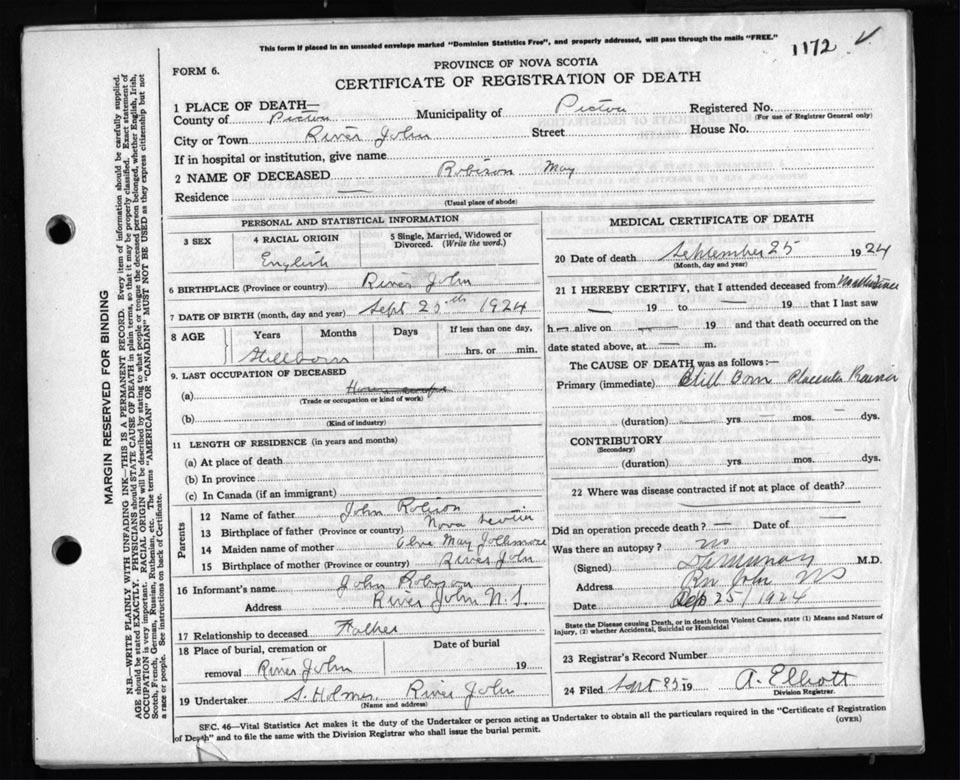 This form if placed in an unsealed envelope marked "Dominion Statistics Free", and properly addressed, will pass through the mails "FREE."
1172 ✓
FORM 6.
PROVINCE OF NOVA SCOTIA
CERTIFICATE OF REGISTRATION OF DEATH
1 PLACE OF DEATH—
County of Pictou Municipality of Pictou Registered No.
(For use of Registrar General only)
City or Town River John Street House No.
If in hospital or institution, give name
2 NAME OF DECEASED Robison May
Residence —
(Usual place of abode)
PERSONAL AND STATISTICAL INFORMATION
3 SEX
4 RACIAL ORIGIN
English
5 Single, Married, Widowed or Divorced. (Write the word.)
6 BIRTHPLACE (Province or country) River John
7 DATE OF BIRTH (month, day and year) Sept 25th 1924
8 AGE Years Months Days If less than one day,
Stillborn hrs. or min.
9. LAST OCCUPATION OF DECEASED
(a)
(Trade or occupation or kind of work)
(b)
(Kind of industry)
11 LENGTH OF RESIDENCE (in years and months)
(a) At place of death
(b) In province
(c) In Canada (if an immigrant)
Parents
12 Name of father John Robison
13 Birthplace of father (Province or country) Nova Scotia
14 Maiden name of mother May
15 Birthplace of mother (Province or country) River John
16 Informant's name John Robison
Address River John N.S.
17 Relationship to deceased Father
18 Place of burial, cremation or Date of burial
removal River John 19
19 Undertaker S. Holmes River John
(Name and address)
MEDICAL CERTIFICATE OF DEATH
20 Date of death September 25 1924
(Month, day and year)
21 I HEREBY CERTIFY, that I attended deceased from
— 19 to — 19 that I last saw
h— alive on — 19 and that death occurred on the
date stated above, at — m.
The CAUSE OF DEATH was as follows:—
Primary (immediate) Still Born Placenta
(duration) yrs. mos. — dys.
CONTRIBUTORY
(Secondary)
(duration) yrs. mos. dys.
22 Where was disease contracted if not at place of death?
Did an operation precede death? — Date of —
Was there an autopsy? no
(Signed) M.D.
Address Riv John NS
Date Sep 25/1924
State the Disease causing Death, or in death from Violent Causes, state (1) Means and Nature of
Injury, (2) whether Accidental, Suicidal or Homicidal
23 Registrar's Record Number
24 Filed Sept 25 19 A. Elliott
Division Registrar.
SEC. 46—Vital Statistics Act makes it the duty of the Undertaker or person acting as Undertaker to obtain all the particulars required in the "Certificate of Registration
of Death" and to file the same with the Division Registrar who shall issue the burial permit.
(OVER)
MARGIN RESERVED FOR BINDING
N.B.—WRITE PLAINLY WITH UNFADING INK—THIS IS A PERMANENT RECORD. Every item of information should be carefully supplied.
AGE should be stated EXACTLY. PHYSICIANS should STATE CAUSE OF DEATH in plain terms, so that it may be properly classified. Exact statement of
OCCUPATION is very important. RACIAL ORIGIN will be described by stating to what people or tongue the deceased person belonged, whether English, Irish,
Scotch, French, German, Russian, Ruthenian, etc. The terms "AMERICAN" OR "CANADIAN" MUST NOT BE USED as they express citizenship but not
a race or people. See instructions on back of Certificate.